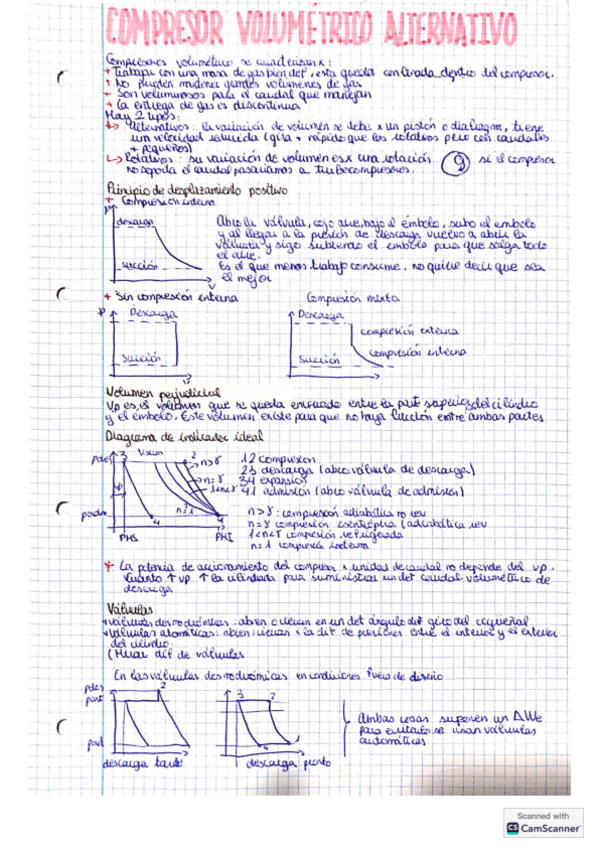 COMPRESOR VOLUMÉTRICO ALTERNATIVO
Compresores volumétrico se caracterizan x:
+ Trabajan con una masa de gas bien def, esta queda confinada dentro del compresor.
+ No pueden mover grandes volúmenes de gas
- Son voluminosos para el caudal que manejan
+ la entrega de gas es discontinua
Hay 2 tipos:
↳ Alternativos: la variación de volumen se debe x un pistón o diafragma, tiene
una velocidad reducida (gira + rápido que los rotativos pero con caudales
+ pequeños)
↳ Rotativos: su variación de volumen es x una rotación si el compresor
no soporta el caudal pasaríamos a turbocompresores.
Principio de desplazamiento positivo
+ Compresión interna
P
descarga
succión
V
Abro la válvula, cojo aire, bajo el émbolo, subo el émbolo
y al llegar a la presión de descarga vuelvo a abrir la
válvula y sigo subiendo el émbolo para que salga todo
el aire.
Es el que menos trabajo consume, no quiere decir que sea
el mejor
+ Sin compresión interna
Compresión mixta
P
Descarga
Succión
V
Descarga
Succión
compresión externa
compresión interna
Volumen perjudicial
Vp es el volumen que se queda encerrado entre la parte superior del cilindro
y el émbolo. Este volumen existe para que no haya fricción entre ambas partes
Diagrama de indicador ideal
pdes
3
2
n>γ
n=γ
1<n<γ
n=1
4
PMS
PMI
12 compresión
23 descarga (abro válvula de descarga)
34 expansión
41 admisión (abro válvula de admisión)
n>γ: compresión adiabática no rev
n=γ compresión isentrópica (adiabática rev
1<n<γ compresión refrigerada
n=1 compresión isoterma
* La potencia de accionamiento del compresor x unidad de caudal no depende del vp.
Cuanto ↑ vp ↑ la cilindrada para suministrar un det caudal volumétrico de
descarga
Válvulas
+ válvulas desmodrómicas: abren o cierran en un det ángulo de giro del cigüeñal
+ válvulas automáticas: abren/cierran x la dif de presiones entre el interior y el exterior
del cilindro.
(Mirar dif de válvulas
En las válvulas desmodrómicas en condiciones fuera de diseño
pdes
2
descarga tarde
3
2
descarga pronto
Ambas cosas suponen un ΔWe
para evitarlo se usan válvulas
automáticas
Scanned with
CS CamScanner